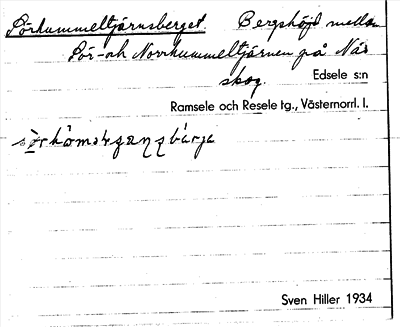 Sörhummeltjärnsberget. Bergshöjd mellan
Sör- och Norrhummeltjärnen på Näs
skog. Edsele s:n
Ramsele och Resele tg., Västernorrl. l.
Sven Hiller 1934